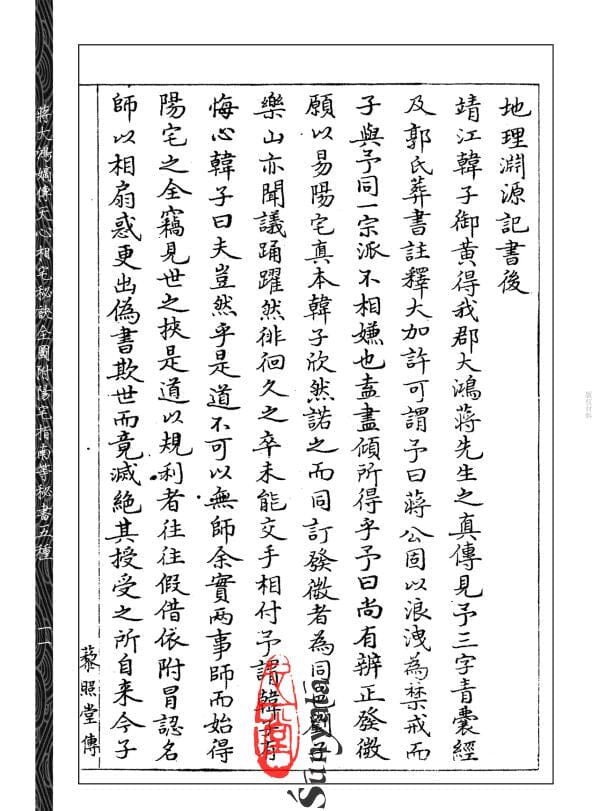 地理淵源記書後
靖江韓子御黃得我郡大鴻蔣先生之真傳見予三字青囊經
及郭氏葬書註釋大加許可謂予曰蔣公固以浪洩為禁戒而
子與予同一宗派不相嫌也盍盡傾所得乎予曰尚有辨正發微
願以易陽宅真本韓子欣然諾之而同訂發微者為同劉子
樂山亦聞議踊躍然徘徊久之卒未能交手相付予謂韓子有
悔心韓子曰夫豈然乎是道不可以無師余實兩事師而始得
陽宅之全竊見世之挾是道以規利者往往假借依附冒認名
師以相扇惑更出偽書欺世而竟滅絕其授受之所自来今子
藜照堂傳
蔣大鴻嫡傳天心相宅秘訣全圖附陽宅指南等秘書五種
一一
版权材料
Śunyata